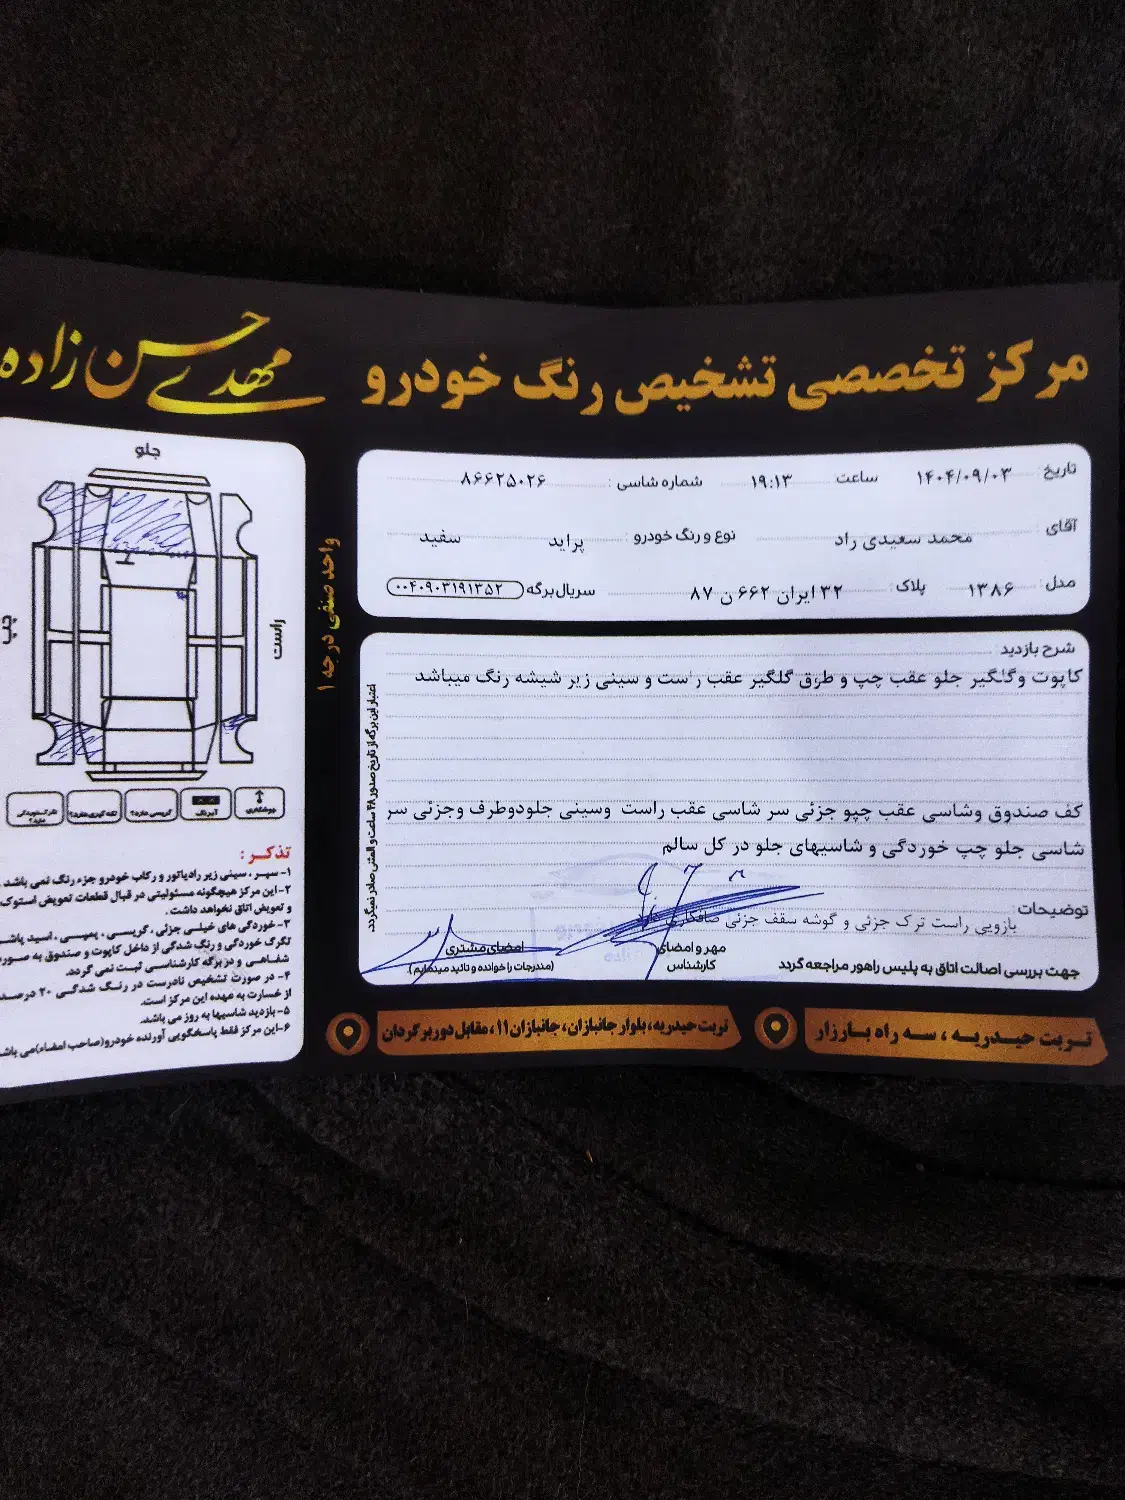 مرکز تخصصی تشخیص رنگ خودرو مهدی حسن زاده
تاریخ: ۱۴۰۴/۰۹/۰۳ ساعت ۱۹:۱۳ شماره شاسی: ۸۶۶۲۵۰۲۶
آقای محمد سعیدی راد نوع و رنگ خودرو: پراید سفید
مدل: ۱۳۸۶ پلاک: ۳۲ ایران ۶۶۲ ن ۸۷ سریال برگه ۰۰۴۰۹۰۳۱۹۱۳۵۲
شرح بازدید
کاپوت وگلگیر جلو عقب چپ و طرق گلگیر عقب راست و سینی زیر شیشه رنگ میباشد
کف صندوق وشاسی عقب چپو جزئی سر شاسی عقب راست وسینی جلودوطرف وجزئی سر
شاسی جلو چپ خوردگی و شاسیهای جلو در کل سالم
توضیحات
بازویی راست ترک جزئی و گوشه سقف جزئی صافکاری دارد
مهر و امضای کارشناس
امضای مشتری
(مندرجات را خوانده و تائید مینمایم.)
جهت بررسی اصالت اتاق به پلیس راهور مراجعه گردد
اعتبار این برگه از تاریخ صدور ۴۸ ساعت و المثنی صادر نمیگردد
واحد صنفی درجه ۱
جلو
چپ
راست
جوشکاری
آبرنگ
گریسی دارد؟
لکه گیری دارد؟
تذکر:
۱- سپر، سینی زیر رادیاتور و رکاب خودرو جزء رنگ نمی باشد.
۲-این مرکز هیچگونه مسئولیتی در قبال قطعات تعویض استوک
و تعویض اتاق نخواهد داشت.
۳-خوردگی های خیلی جزئی، گریسی، پمپسی، اسید پاشی
تگرگ خوردگی و رنگ شدگی از داخل کاپوت و صندوق به صورت
شفاهی و در برگه کارشناسی ثبت نمی گردد.
۴- در صورت تشخیص نادرست در رنگ شدگی ۲۰ درصد
از خسارت به عهده این مرکز است.
۵-بازدید شاسیها به روز می باشد.
۶-این مرکز فقط پاسخگویی آورنده خودرو(صاحب امضاء)می باشد
تربت حیدریه، سه راه بارزار
تربت حیدریه، بلوار جانبازان، جانبازان ۱۱، مقابل دوربرگردان